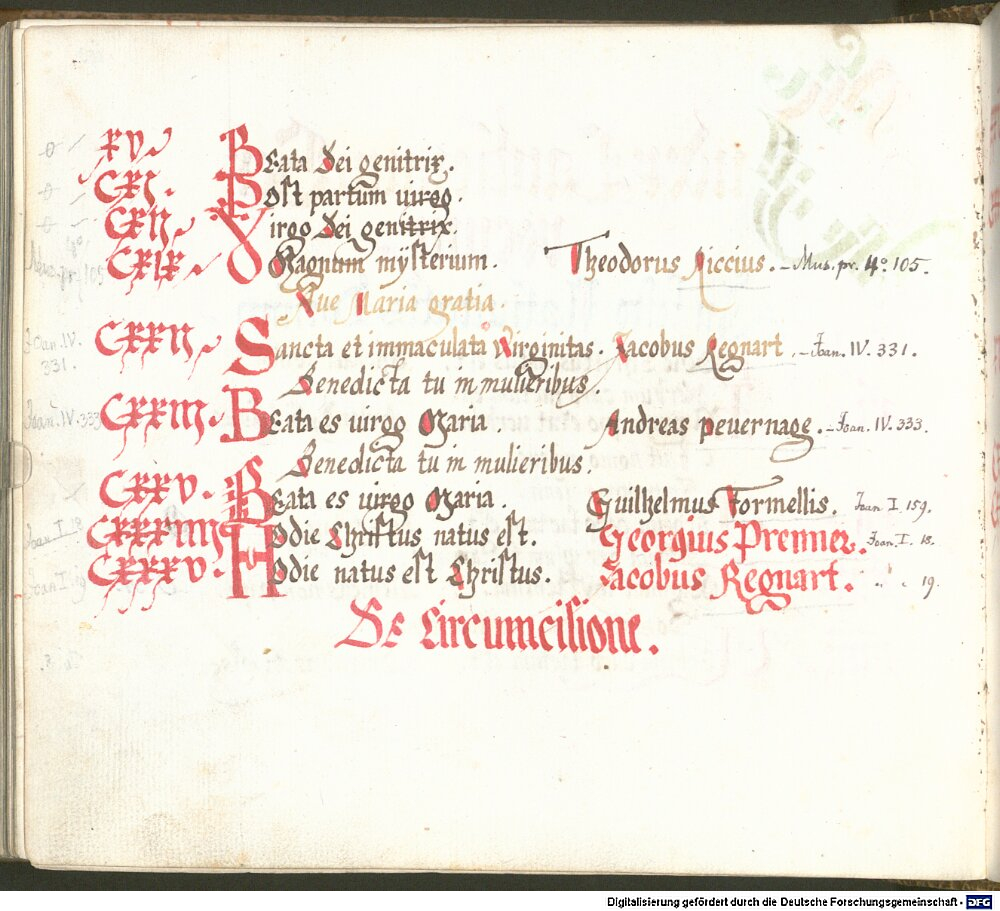 XV. BEata Dei genitrix.
CXI. POst partum uirgo.
CXII. VIrgo Dei genitrix.
CXIX. O Magnum mÿsterium. Theodorus Riccius. – Mus. pr. 4º 105.
Aue Maria gratia.
CXXII. SAncta et immaculata Virginitas. Jacobus Regnart. – Joan. IV. 331.
Benedicta tu in mulieribus.
CXXIII. BEata es uirgo Maria. Andreas peuernage. – Joan. IV. 333.
Benedicta tu in mulieribus.
CXXV. BEata es uirgo Maria. Guilhelmus Formellis. Joan. I. 159.
CXXXIIII. HOdie Christus natus est. Georgius Prenner. Joan. I. 18.
CXXXV. HOdie natus est Christus. Jacobus Regnart. " . " 19.
De Circumcisione.
Joan. IV. 331.
Joan. IV. 333
Digitalisierung gefördert durch die Deutsche Forschungsgemeinschaft - DFG